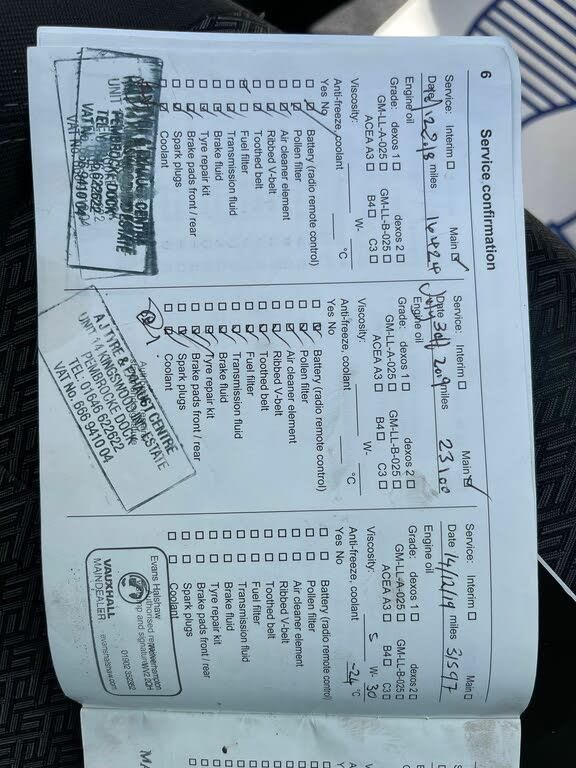 6
Service confirmation
Service: Interim ☐ Main ☑
Date 12 2018 miles 16424
Engine oil
Grade: dexos 1 ☐ dexos 2 ☐
GM-LL-A-025 ☐ GM-LL-B-025 ☐
ACEA A3 ☐ B4 ☐ C3 ☐
Viscosity: W-
Anti-freeze, coolant °C
Yes No
Battery (radio remote control)
Pollen filter
Air cleaner element
Ribbed V-belt
Toothed belt
Fuel filter
Transmission fluid
Brake fluid
Tyre repair kit
Brake pads front / rear
Spark plugs
Coolant
PEMBROKE DOCK
Service: Interim ☐ Main ☑
Date July 30th 2019 miles 23100
Engine oil
Grade: dexos 1 ☐ dexos 2 ☐
GM-LL-A-025 ☐ GM-LL-B-025 ☐
ACEA A3 ☐ B4 ☐ C3 ☐
Viscosity: W-
Anti-freeze, coolant °C
Yes No
Battery (radio remote control)
Pollen filter
Air cleaner element
Ribbed V-belt
Toothed belt
Fuel filter
Transmission fluid
Brake fluid
Tyre repair kit
Brake pads front / rear
Spark plugs
Coolant
A.J TYRE & EXHAUST CENTRE
UNIT 1 KINGSWOOD IND ESTATE
PEMBROKE DOCK
TEL 01646 622622
VAT No. 666 9410 04
Service: Interim ☐ Main ☐
Date 14/12/19 miles 31597
Engine oil
Grade: dexos 1 ☐ dexos 2 ☐
GM-LL-A-025 ☐ GM-LL-B-025 ☐
ACEA A3 ☐ B4 ☐ C3 ☐
Viscosity: 5 W- 30
Anti-freeze, coolant -24 °C
Yes No
Battery (radio remote control)
Pollen filter
Air cleaner element
Ribbed V-belt
Toothed belt
Fuel filter
Transmission fluid
Brake fluid
Tyre repair kit
Brake pads front / rear
Spark plugs
Coolant
Evans Halshaw
VAUXHALL
MAINDEALER
evanshalshaw.com